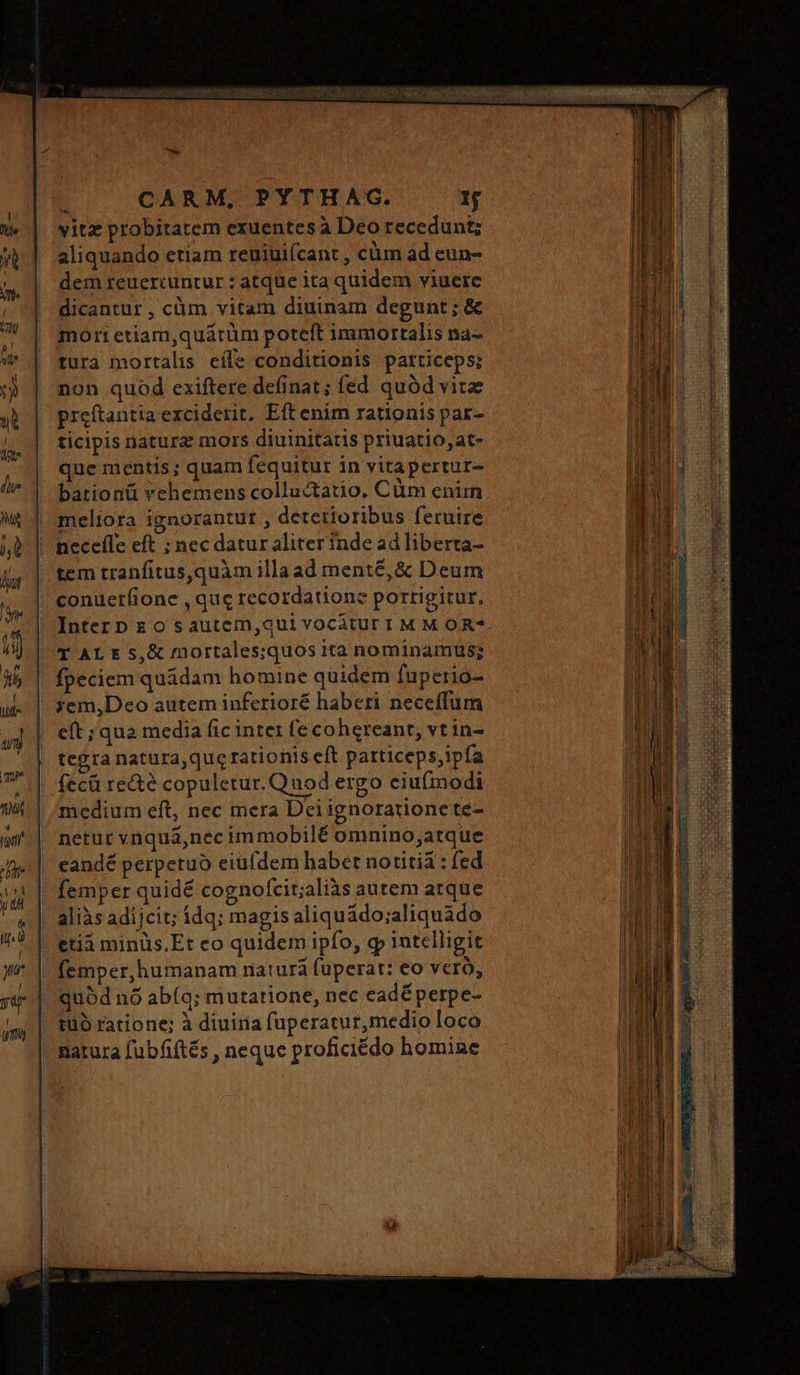 CARM, PYTHAG. 15
vitæ probitatem exuentes à Deo recedunt;
aliquando etiam reuiuiſcant, cùm ad eun-
dem reuertuntur : atque ita quidem viuere
dicantur, cùm vitam diuinam degunt; &
mori etiam, quátùm poteſt immortalis na-
tura mortalis eſſe conditionis particeps;
non quòd exiſtere deſinat; ſed quòd vitæ
pręſtantia exciderit. Eſt enim rationis par-
ticipis naturæ mors diuinitatis priuatio, at-
que mentis; quam ſequitur in vita pertur-
bationū vehemens colluctatio. Cùm enim
meliora ignorantur, deterioribus ſeruire
neceſſe eſt ; nec datur aliter inde ad liberta-
tem tranſitus, quàm illa ad menté, & Deum
conuerſione, quę recordatione porrigitur.
Inter D E O S autem, qui vocátur I M M OR-
T AL E S, & mortales; quos ita nominamus;
ſpeciem quádam homine quidem ſuperio-
rem, Deo autem inferioré haberi neceſſum
eſt; qua media ſic inter ſe cohęreant, vt in-
tegra natura, quę rationis eſt particeps, ipſa
ſecū rectè copuletur. Quod ergo eiuſmodi
medium eſt, nec mera Dei ignoratione te-
netur vnquá, nec immobilé omnino, atque
eandé perpetuò eiuſdem habet notitiá : ſed
ſemper quidé cognoſcit; aliàs autem atque
aliàs adijcit; ídq; magis aliquádo; aliquádo
etiá minùs. Et eo quidem ipſo, ꝙ intelligit
ſemper, humanam naturá ſuperat: eo verò,
quòd nó abſq; mutatione, nec eadé perpe-
tuò ratione; à diuina ſuperatur, medio loco
natura ſubſiſtés, neque proficiédo homine